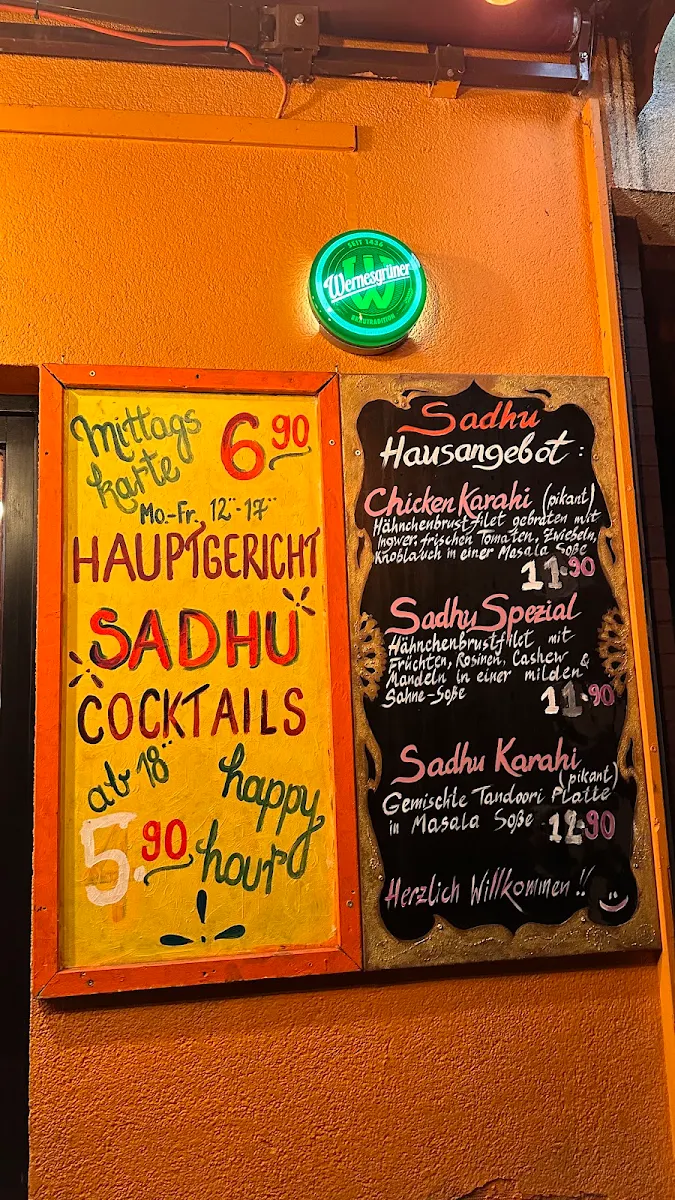 SEIT 1436
Wernesgrüner
BRAUTRADITION
Mittags
karte
6 90
Mo.-Fr. 12°°-17°°
HAUPTGERICHT
SADHU
COCKTAILS
ab 18°°
happy
hour
5.90
!
Sadhu
Hausangebot:
Chicken Karahi (pikant)
Hähnchenbrustfilet gebraten mit
Ingwer, frischen Tomaten, Zwiebeln,
Knoblauch in einer Masala Soße
11.90
Sadhu Spezial
Hähnchenbrustfilet mit
Früchten, Rosinen, Cashew &
Mandeln in einer milden
Sahne-Soße
11.90
Sadhu Karahi
(pikant)
Gemischte Tandoori Platte
in Masala Soße
12.90
Herzlich Willkommen!!